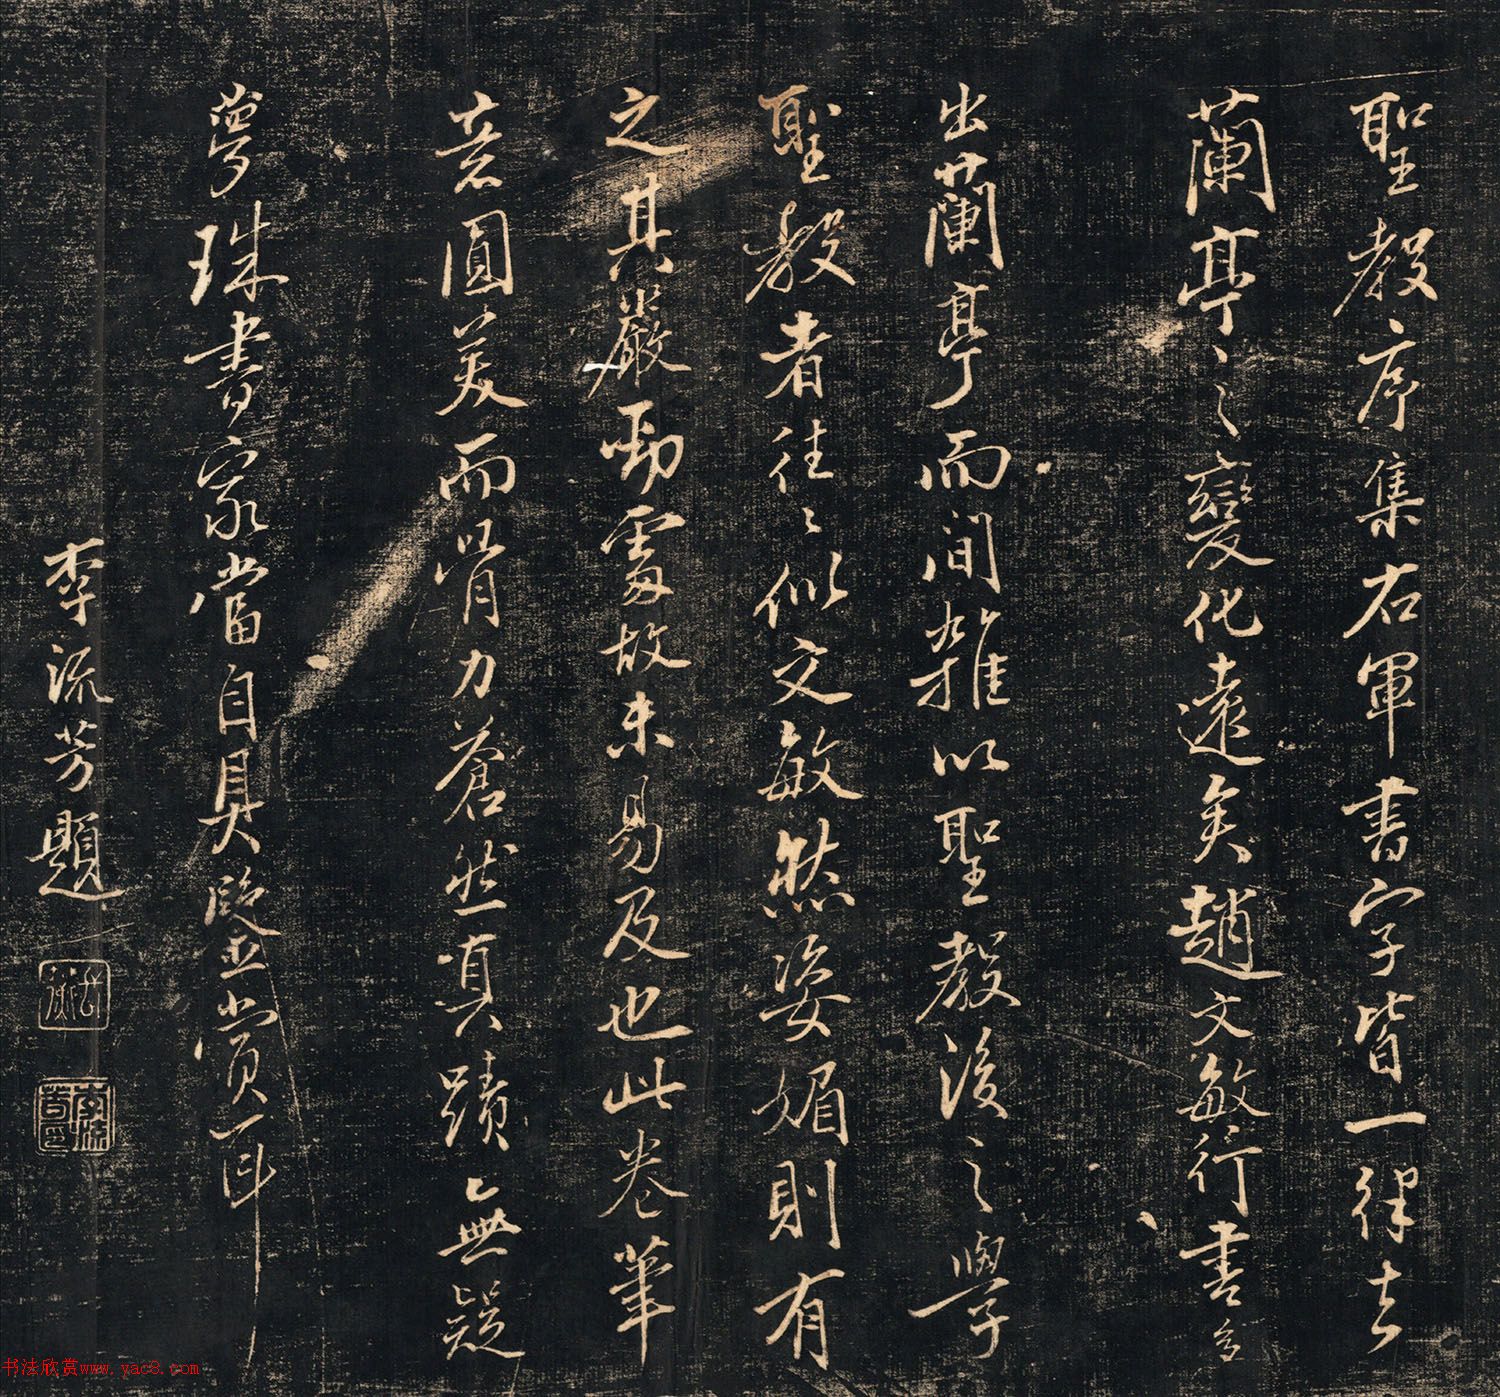 聖教序集右軍書字皆一律去
蘭亭之變化遠矣趙文敏行書全
出蘭亭而間雜以聖教後之學
聖教者往々似文敏然姿媚則有
之其嚴勁處故未易及也此卷筆
意圓美而骨力蒼然真蹟無疑
夢珠書家當自具鑒賞耳
李流芳題
书法欣赏www.yac8.com